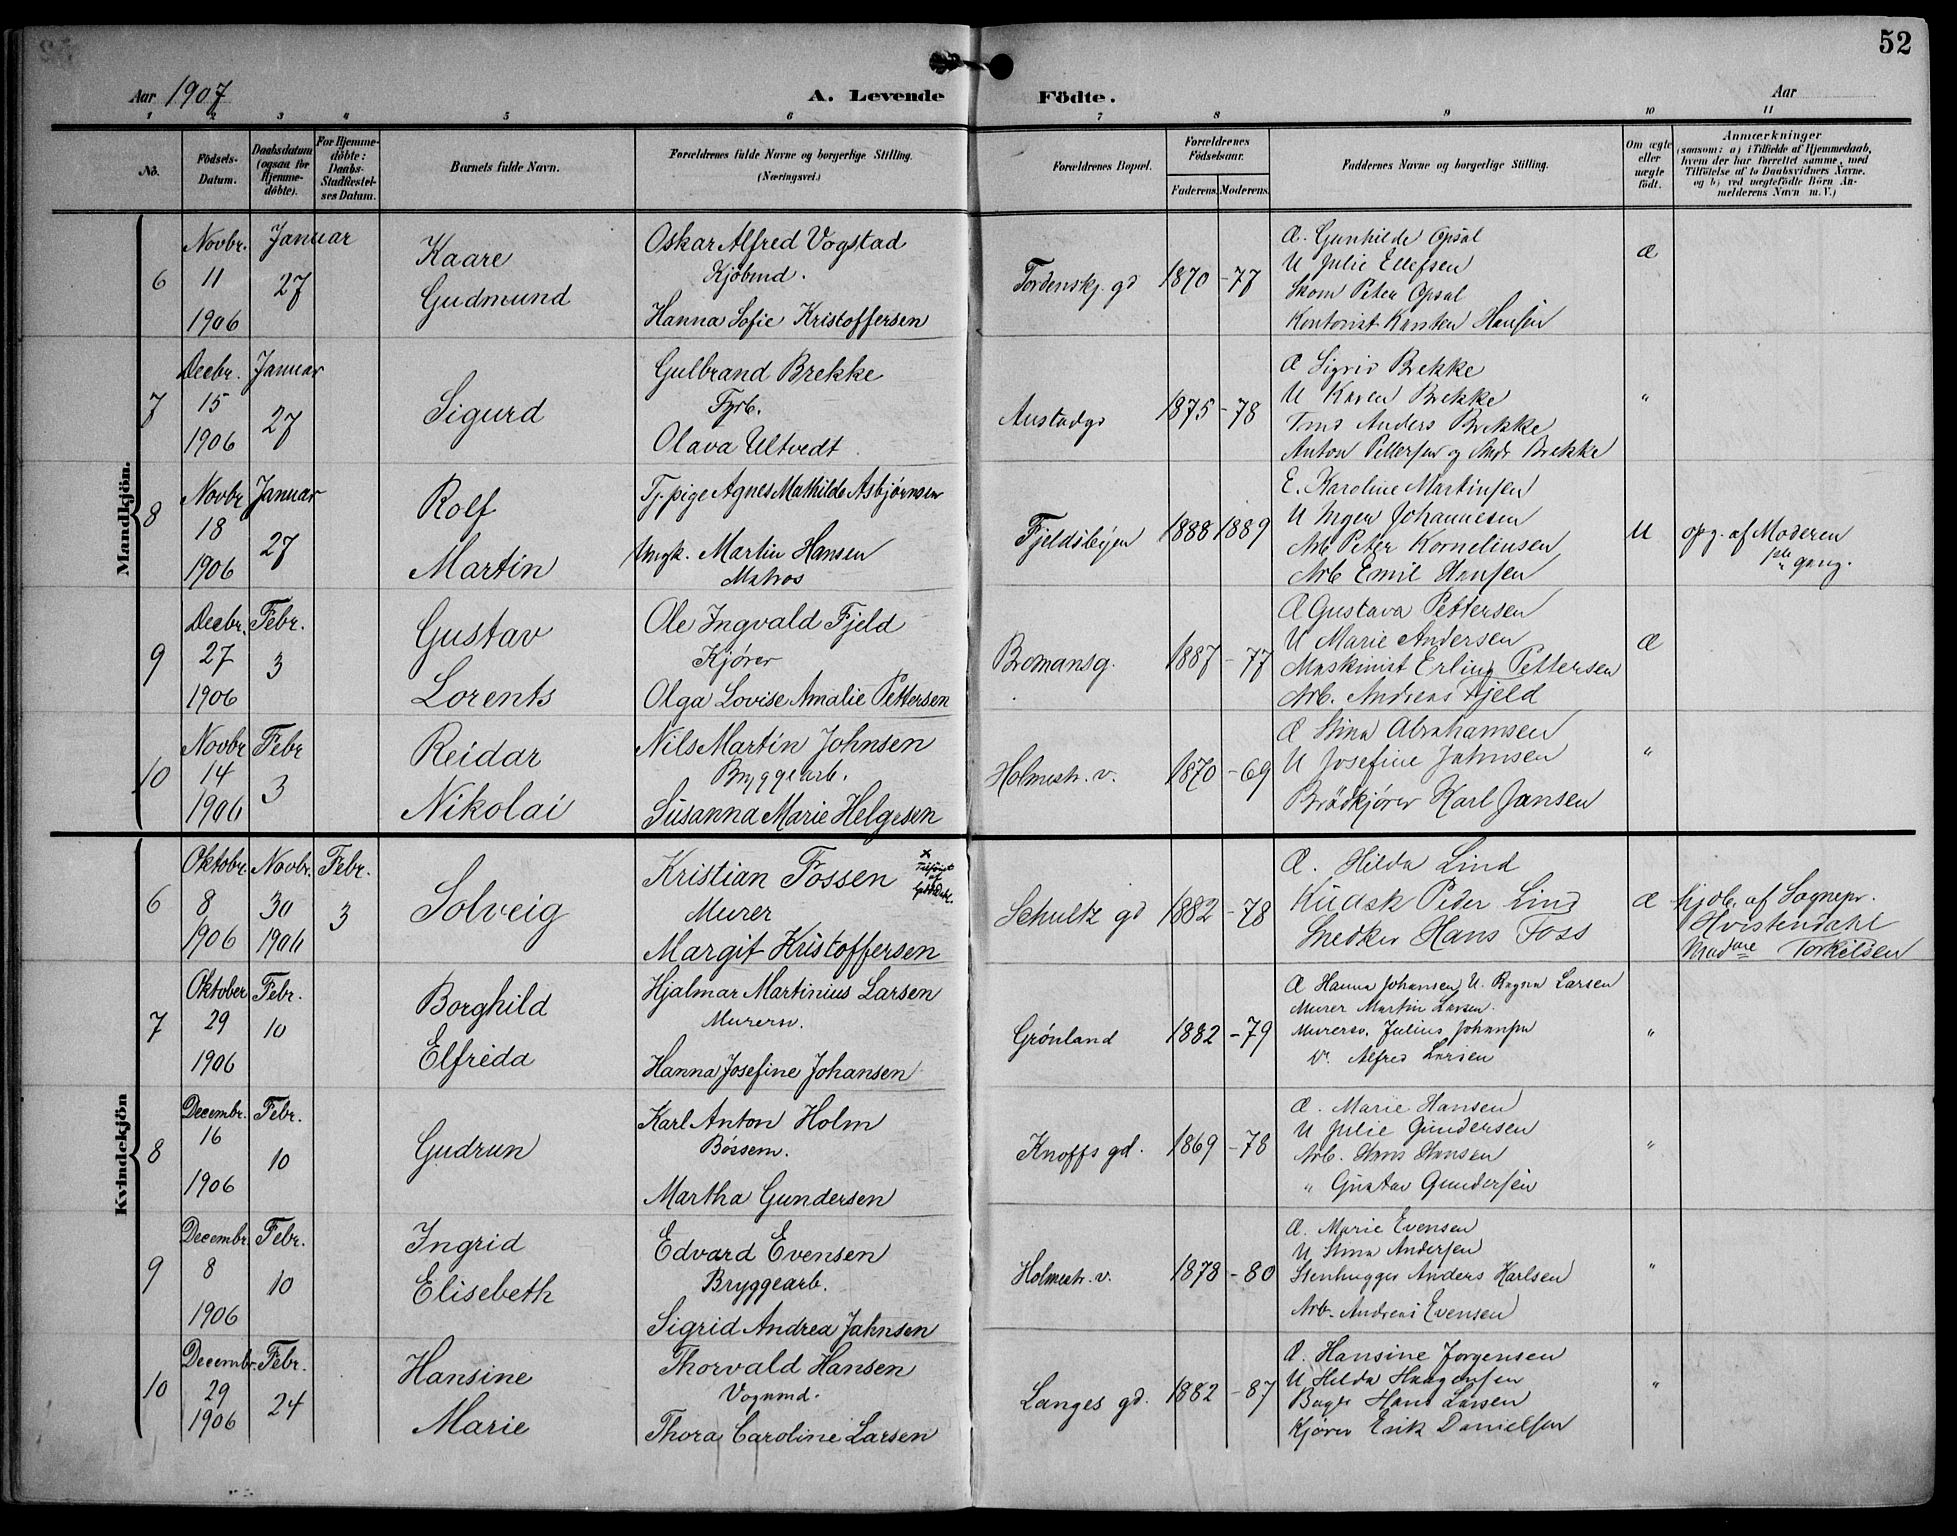 52
Aar 1907
A. Levende Födte.
Aar
1 2 3 4 5 6 7 8 9 10 11
No.
Födsels-Datum.
Daabsdatum (ogsaa for Hjemme-döbte).
For Hjemme-döbte: Daabs-Stadfæstel-ses Datum.
Barnets fulde Navn.
Forældrenes fulde Navne og borgerlige Stilling. (Næringsvei.)
Forældrenes Bopæl.
Forældrenes Födselsaar.
Faderens. Moderens.
Faddernes Navne og borgerlige Stilling.
Om ægte eller uægte födt.
Anmærkninger
(saasom: a) i Tilfælde af Hjemmedaab,
hvem der har forrettet samme, med
Tilföielse af to Daabsvidners Navne.
og b) ved uægtefödte Börn An-
melderens Navn m. V.)
Mandkjön.
6
Novbr. 11 1906
Januar 27
Kaare
Gudmund
Oskar Alfred Vogstad
Kjöbmd.
Hanna Sofie Kristoffersen
Tordenskj. gd
1870 - 77
Æ. Gunhilde Opsal
U Julie Ellefsen
Skom Peter Opsal
Kontorist Karsten Hansen
Æ
7
Decbr. 15 1906
Januar 27
Sigurd
Gulbrand Brekke
Fyrb.
Olava Ultvedt
Austadgd
1875 - 78
Æ Sigrid Brekke
U Karen Brekke
Anders Brekke
Anton Pettersen og Andr Brekke
"
8
Novbr 18 1906
Januar 27
Rolf
Martin
Tj. pige Agnes Mathilde Asbjørnsen
Ungk. Martin Hansen
Matros
Fjeldsbyen
1888 1889
E. Karoline Martinsen
U Inger Johannesen
Arb Peter Korneliusen
Arb Emil Hansen
U
opg. af Moderen
gang.
9
Decbr. 27 1906
Febr. 3
Gustav
Lorents
Ole Ingvald Fjeld
Kjører
Olga Lovise Amalie Pettersen
Bromansg.
1887 - 77
Æ Gustava Pettersen
U Marie Andersen
Maskinist Erling Pettersen
Arb. Andreas Fjeld
Æ
10
Novbr 14 1906
Febr 3
Reidar
Nikolai
Nils Martin Johnsen
Bryggearb.
Susanna Marie Helgesen
Holmestr. v.
1870 - 69
Æ Stina Abrahamsen
U Josefine Johnsen
Brödkjører Karl Jansen
"
Kvindekjön
6
Oktobr. 8 1906
Novbr. 30 1906
Febr. 3
Solveig
Kristian Fossen
Murer
Margit Kristoffersen
Schultz gd
1882 - 78
Æ. Hilda Lind
Kudsk Peder Lind
Snedker Hans Foss
Æ
hjdb. af Sognepr.
Hvistendahl
Torkilsen
7
Oktober 29 1906
Febr. 10
Borghild
Elfrida
Hjalmar Martinius Larsen
Murersv.
Hanna Josefine Johansen
Grönland
1882 - 79
Æ Hanna Johansen U. Ragna Larsen
Murer Martin Larsen.
Murersv. Julius Johansen
Alfred Larsen
"
8
Decembr. 16 1906
Febr. 10
Gudrun
Karl Anton Holm
Bøssem.
Martha Gundersen
Knoffs gd.
1869 - 78
Æ. Marie Hansen
U Julie Gundersen
Arb. Hans Hansen
" Gustav Gundersen
"
9
Decembr. 8 1906
Febr. 10
Ingrid
Elisebeth
Edvard Evensen
Bryggearb.
Sigrid Andrea Jahnsen
Holmestr. v.
1878 - 80
Æ. Marie Evensen
U Stina Andersen
Stenhugger Anders Karlsen
Arb. Andreas Evensen
"
10
Decembr. 29 1906
Febr. 24
Hansine
Marie
Thorvald Hansen
Vognmd.
Thora Caroline Larsen
Langes gd.
1882 - 87
Æ. Hansine Jørgensen
U Hilda Haagensen
Hans Larsen
Kjører Erik Danielsen
"